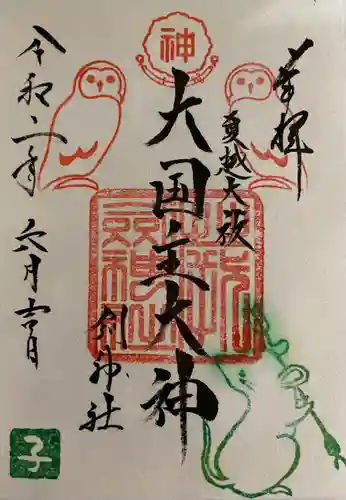 奉拝
夏越大祓
大国主大神
剣神社
令和二年
六月吉日
神
子